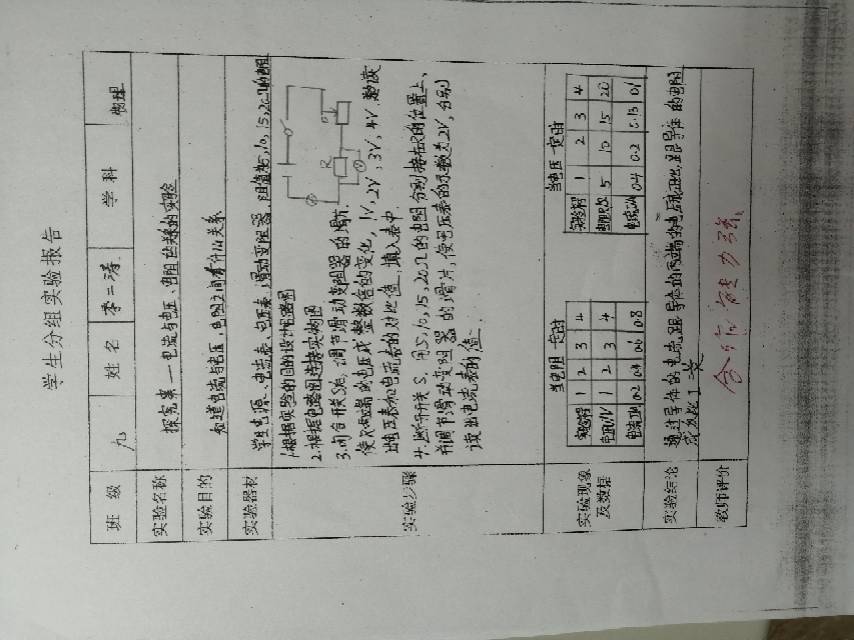 学生分组实验报告
班级 九 姓名 李二涛 学科 物理
实验名称 探究案——电流与电压、电阻的关系的实验
实验目的 知道电流与电压、电阻之间有什么关系
实验器材 学生电源、电流表、电压表、滑动变阻器、阻值为5,10,15,20Ω的电阻
实验步骤
1.根据实验的目的设计电路图
2.根据电路图连接实物图
3.闭合开关S后,调节滑动变阻器的滑片,
使R两端的电压成整数倍的变化,1V,2V,3V,4V,
出电压表和电流表的对应值,填入表中.
4.断开开关S,用5,10,15,20Ω的电阻分别接在R的位置上、
并调节滑动变阻器的滑片,使电压表的示数为2V,分别
读出电流表的值.
R
P
实验现象及数据
当电阻一定时
实验次数 1 2 3 4
电压U/V 1 2 3 4
电流I/A 0.2 0.4 0.6 0.8
当电压一定时
实验次数 1 2 3 4
电阻R/Ω 5 10 15 20
电流I/A 0.4 0.2 0.13 0.1
实验结论 通过导体的电流跟导体的两端的电压成正比,跟导体的电阻
成反比 I=
教师评价 合作能力强.